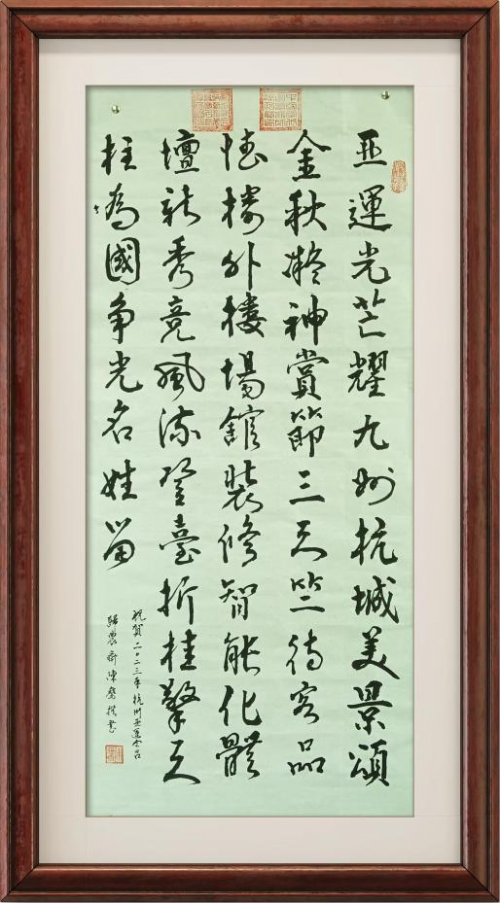 亚運光芒耀九州杭城美景頌
金秋凝神賞節三天竺待客品
情樓外樓場館裝修智能化體
壇新秀竞風流登臺折桂擎天
柱為國争光名姓留
祝賀二〇二三年杭州亚運会召
歸農齋陳撰書